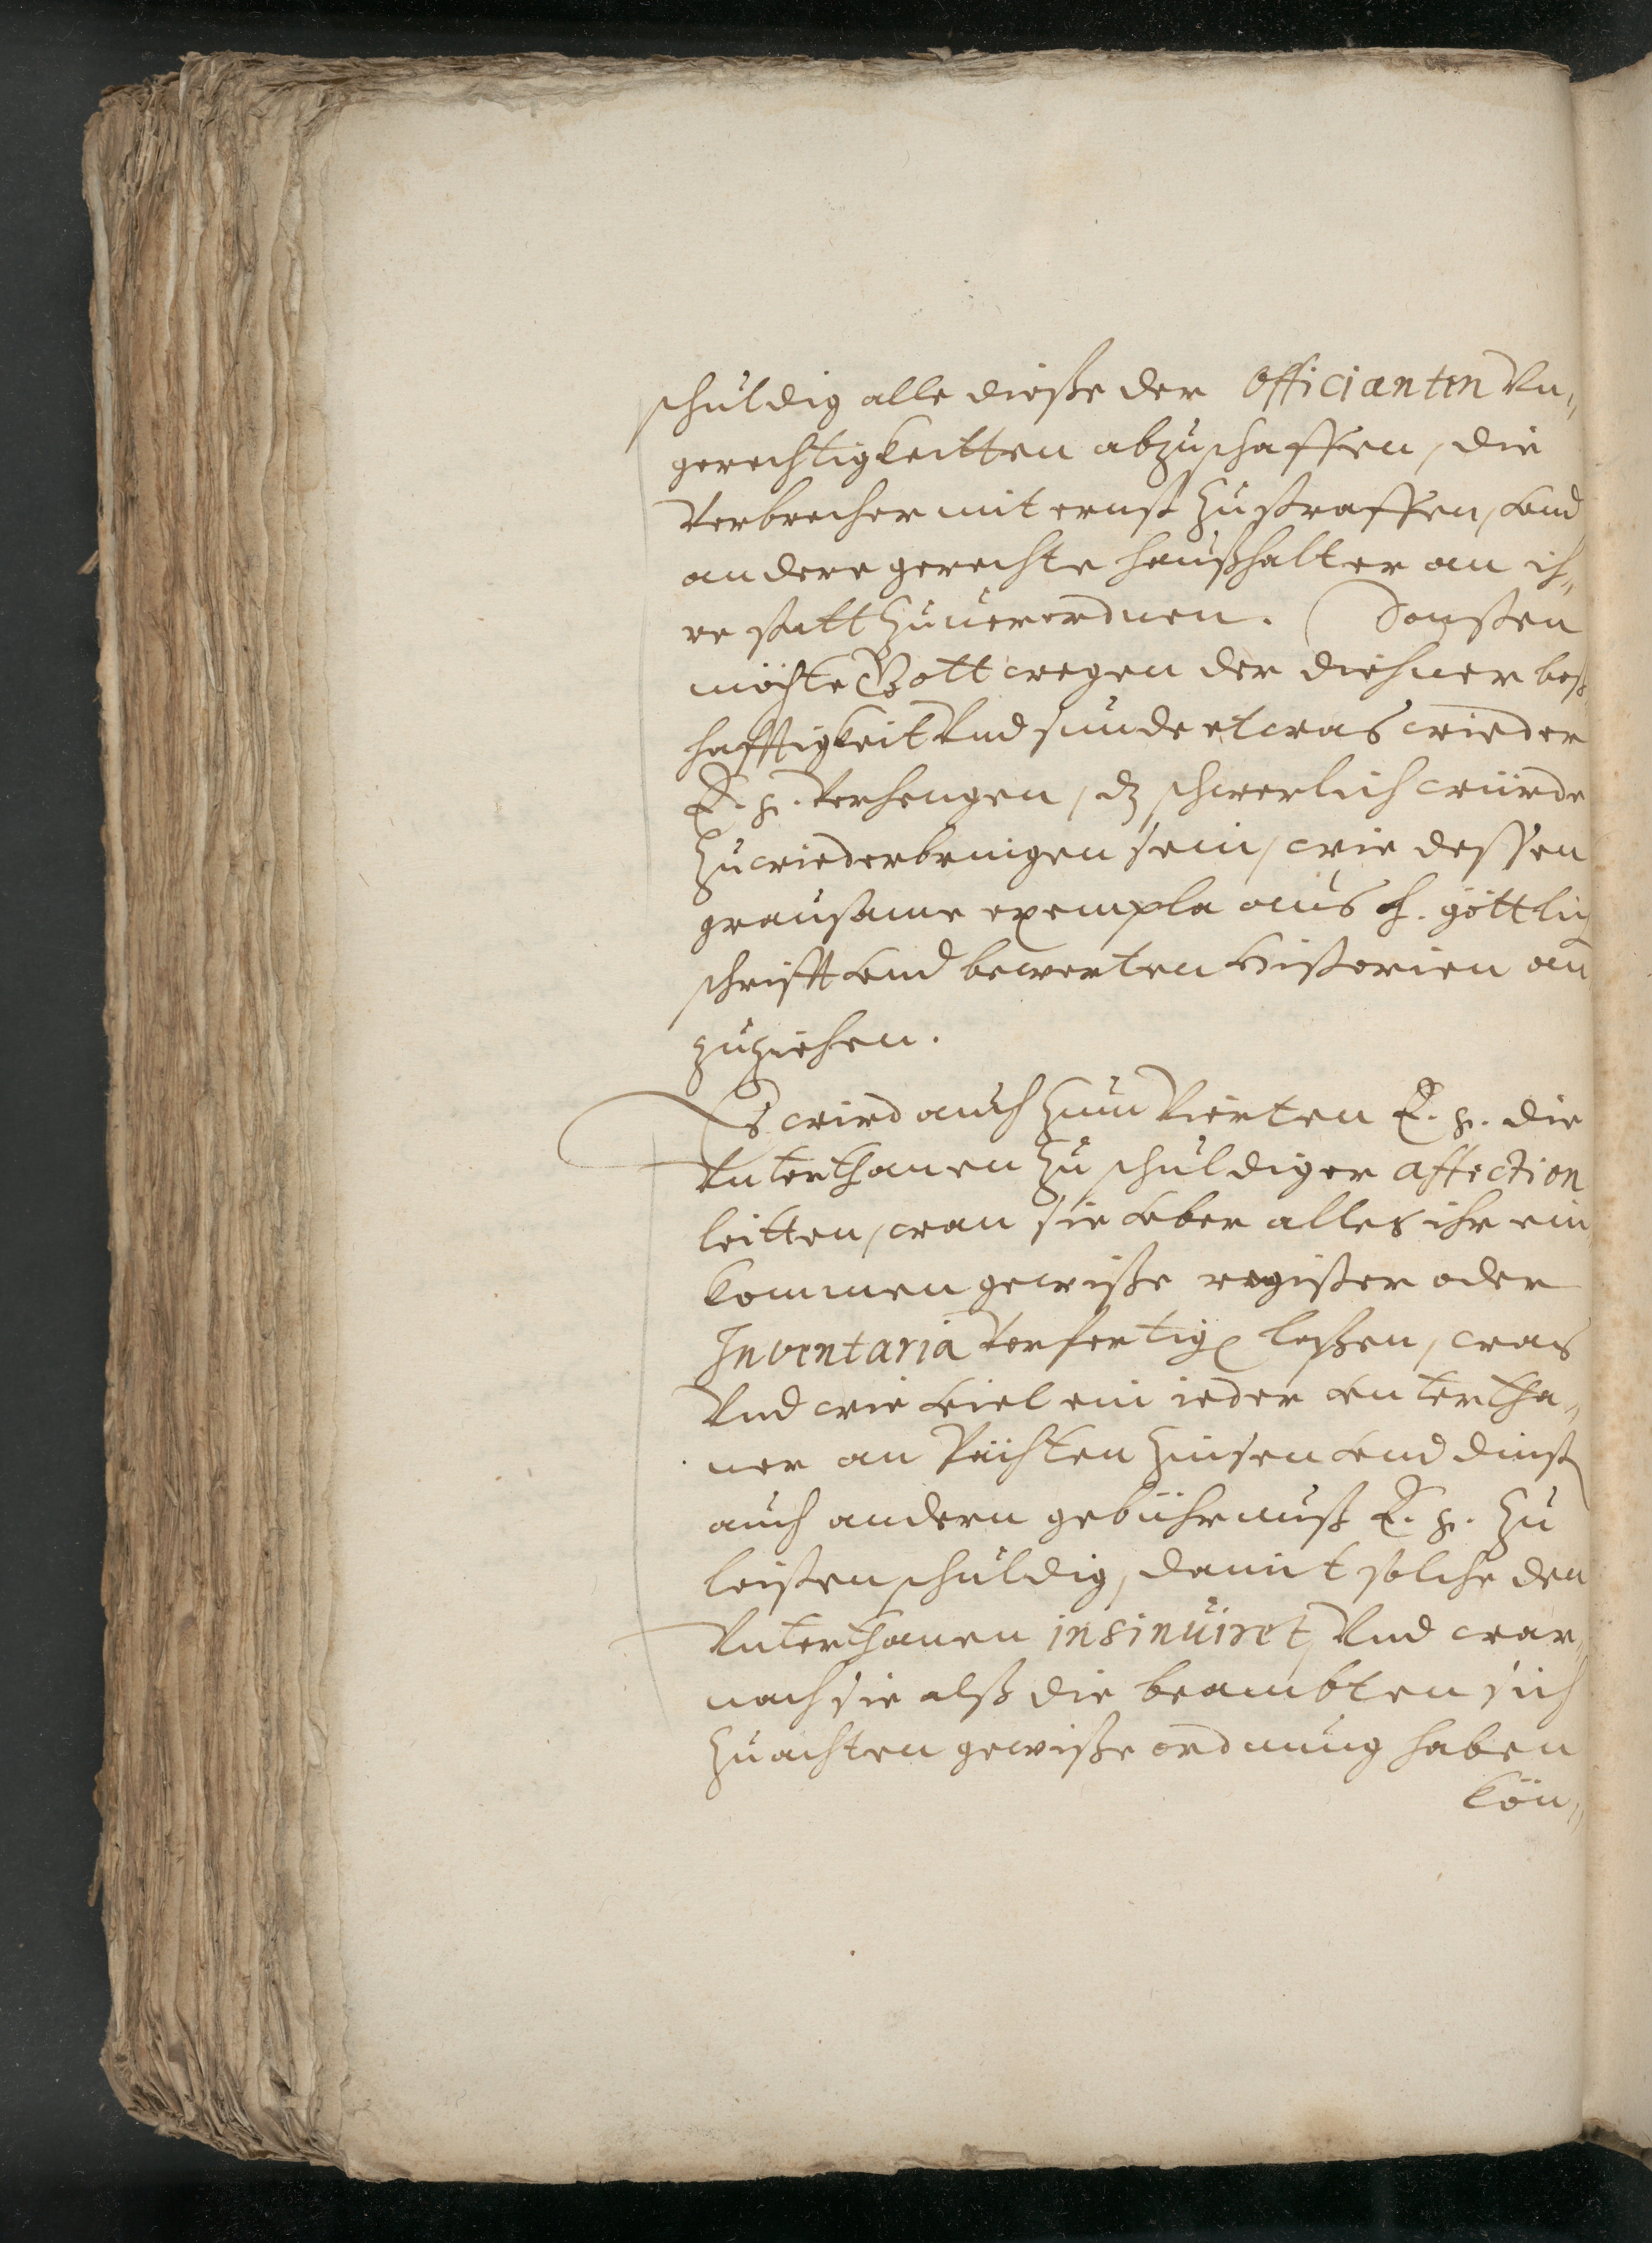 schuldig alle dieße der Officianten Vn„
gerechtigkeitten abzuschaffen, die
Verbrecher mit ernst zu straffen, vnd
andere gerechte haußhalter an ih„
re statt zuuerordnen. Sonsten
möchte Gott wegen der diehner boß
hafftigkeit Vnd sunde etwas wieder
E. g. Verhengen, dz schwerlich würde
zu wiederbringen sein, wie dessen
grausame exempla aus h. göttlich
schrifft vnd bewerten Historien an
zuziehen.
Es wird auch zum Vierten E. g. die
Vnterthanen zu schuldiger affection
leitten, wan sie vber alles ihr ein
kommen gewiße register oder
Inventaria Verfertigen laßen, was
Vnd wie viel ein ieder vntertha„
ner an Pächten Zinsen vnd dinst
auch andern gebührnuß E. g. zu
leisten schuldig, damit solche den
Vnterthanen insinuiret, Vnd war„
nach sie alß die beambten sich
zu achten gewiße ordnung haben
kön„